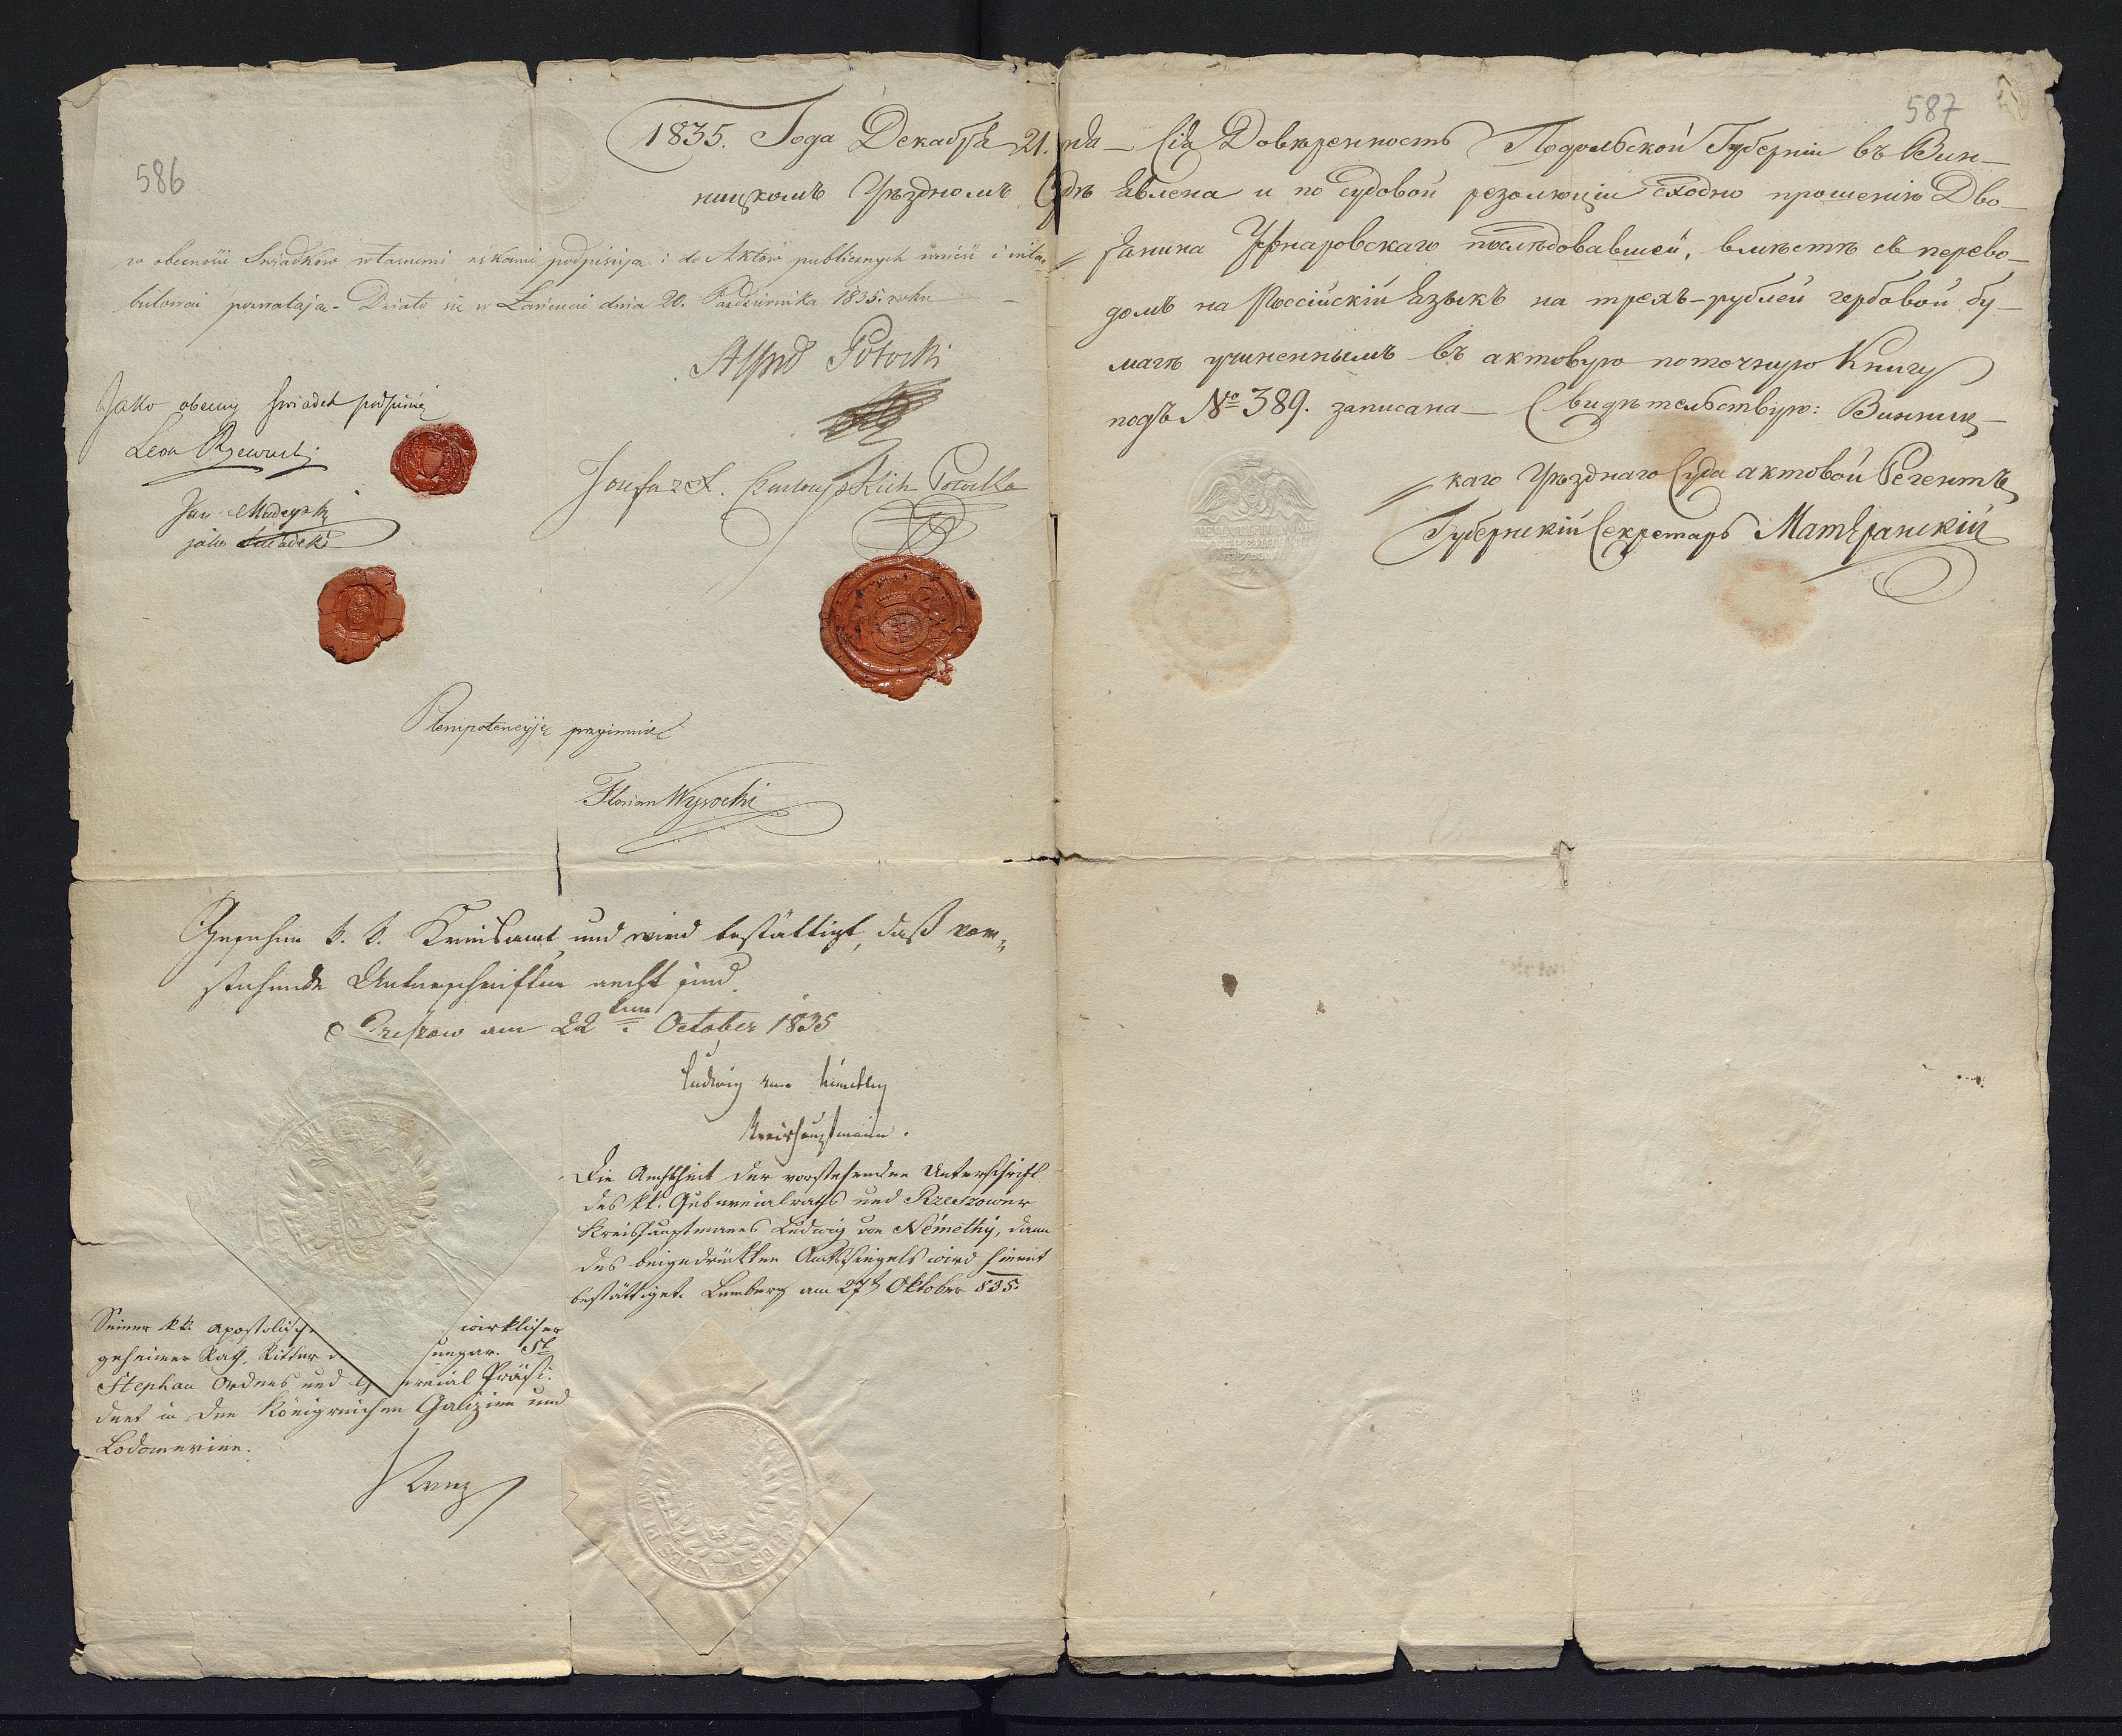 586
587
1835. Года Декабря 21. дня – Сія Довѣренность Подольской Губерніи въ Вин–
ницкомъ Уѣздномъ Судѣ явлена и по судовой резолюціи сходно прошенію Дво–
рянина последовавшей, вместѣ съ перево–
домъ на Россійскій языкъ на трехъ-рублей гербовой бу–
магѣ учиненнымъ въ актовую поточную Книгу
подъ № 389. записана – Свидѣтельствую: Винниц–
каго Уѣзднаго Суда актовой Регентъ
Губернскій Секретарь
w obecności Swiadków własnemi rękami podpisują i do Aktów publicznych wnieść i inta–
bulować pozwalają – Działo się w Łańcucie dnia 20. Października 1835. roku
Alfred Potocki
Jako obecny swiadek podpisuię
Leon Rzewuski
Józefa z X. Czartoryskich Potocka
Jan Madeyski
jako Swiadek
Plenipotencyję przyimuię
Florian Wysocki
k. k. Kreisamt und wird bestättigt, daß vor„
stehende Unterschriften aecht sind.
Rzeszow am 22ten October 1835
Ludwig von Némethy
Kreishauptmann.
Die Aechtheit der vorstehenden Unterschrift
des kk. Gubernialraths und Rzeszower
Kreishauptmanns Ludwig von Némethy, dann
des beigedrückten Amtssiegels wird hiemit
bestättiget. Lemberg am 27t Oktober 835.
Seiner kk. apostolisch wirklicher
geheimer Rath, Ritter d ungar. St
Stephan Ordens und G ernial Präsi–
dent in den Königreichen Galizien und
Lodomerien.